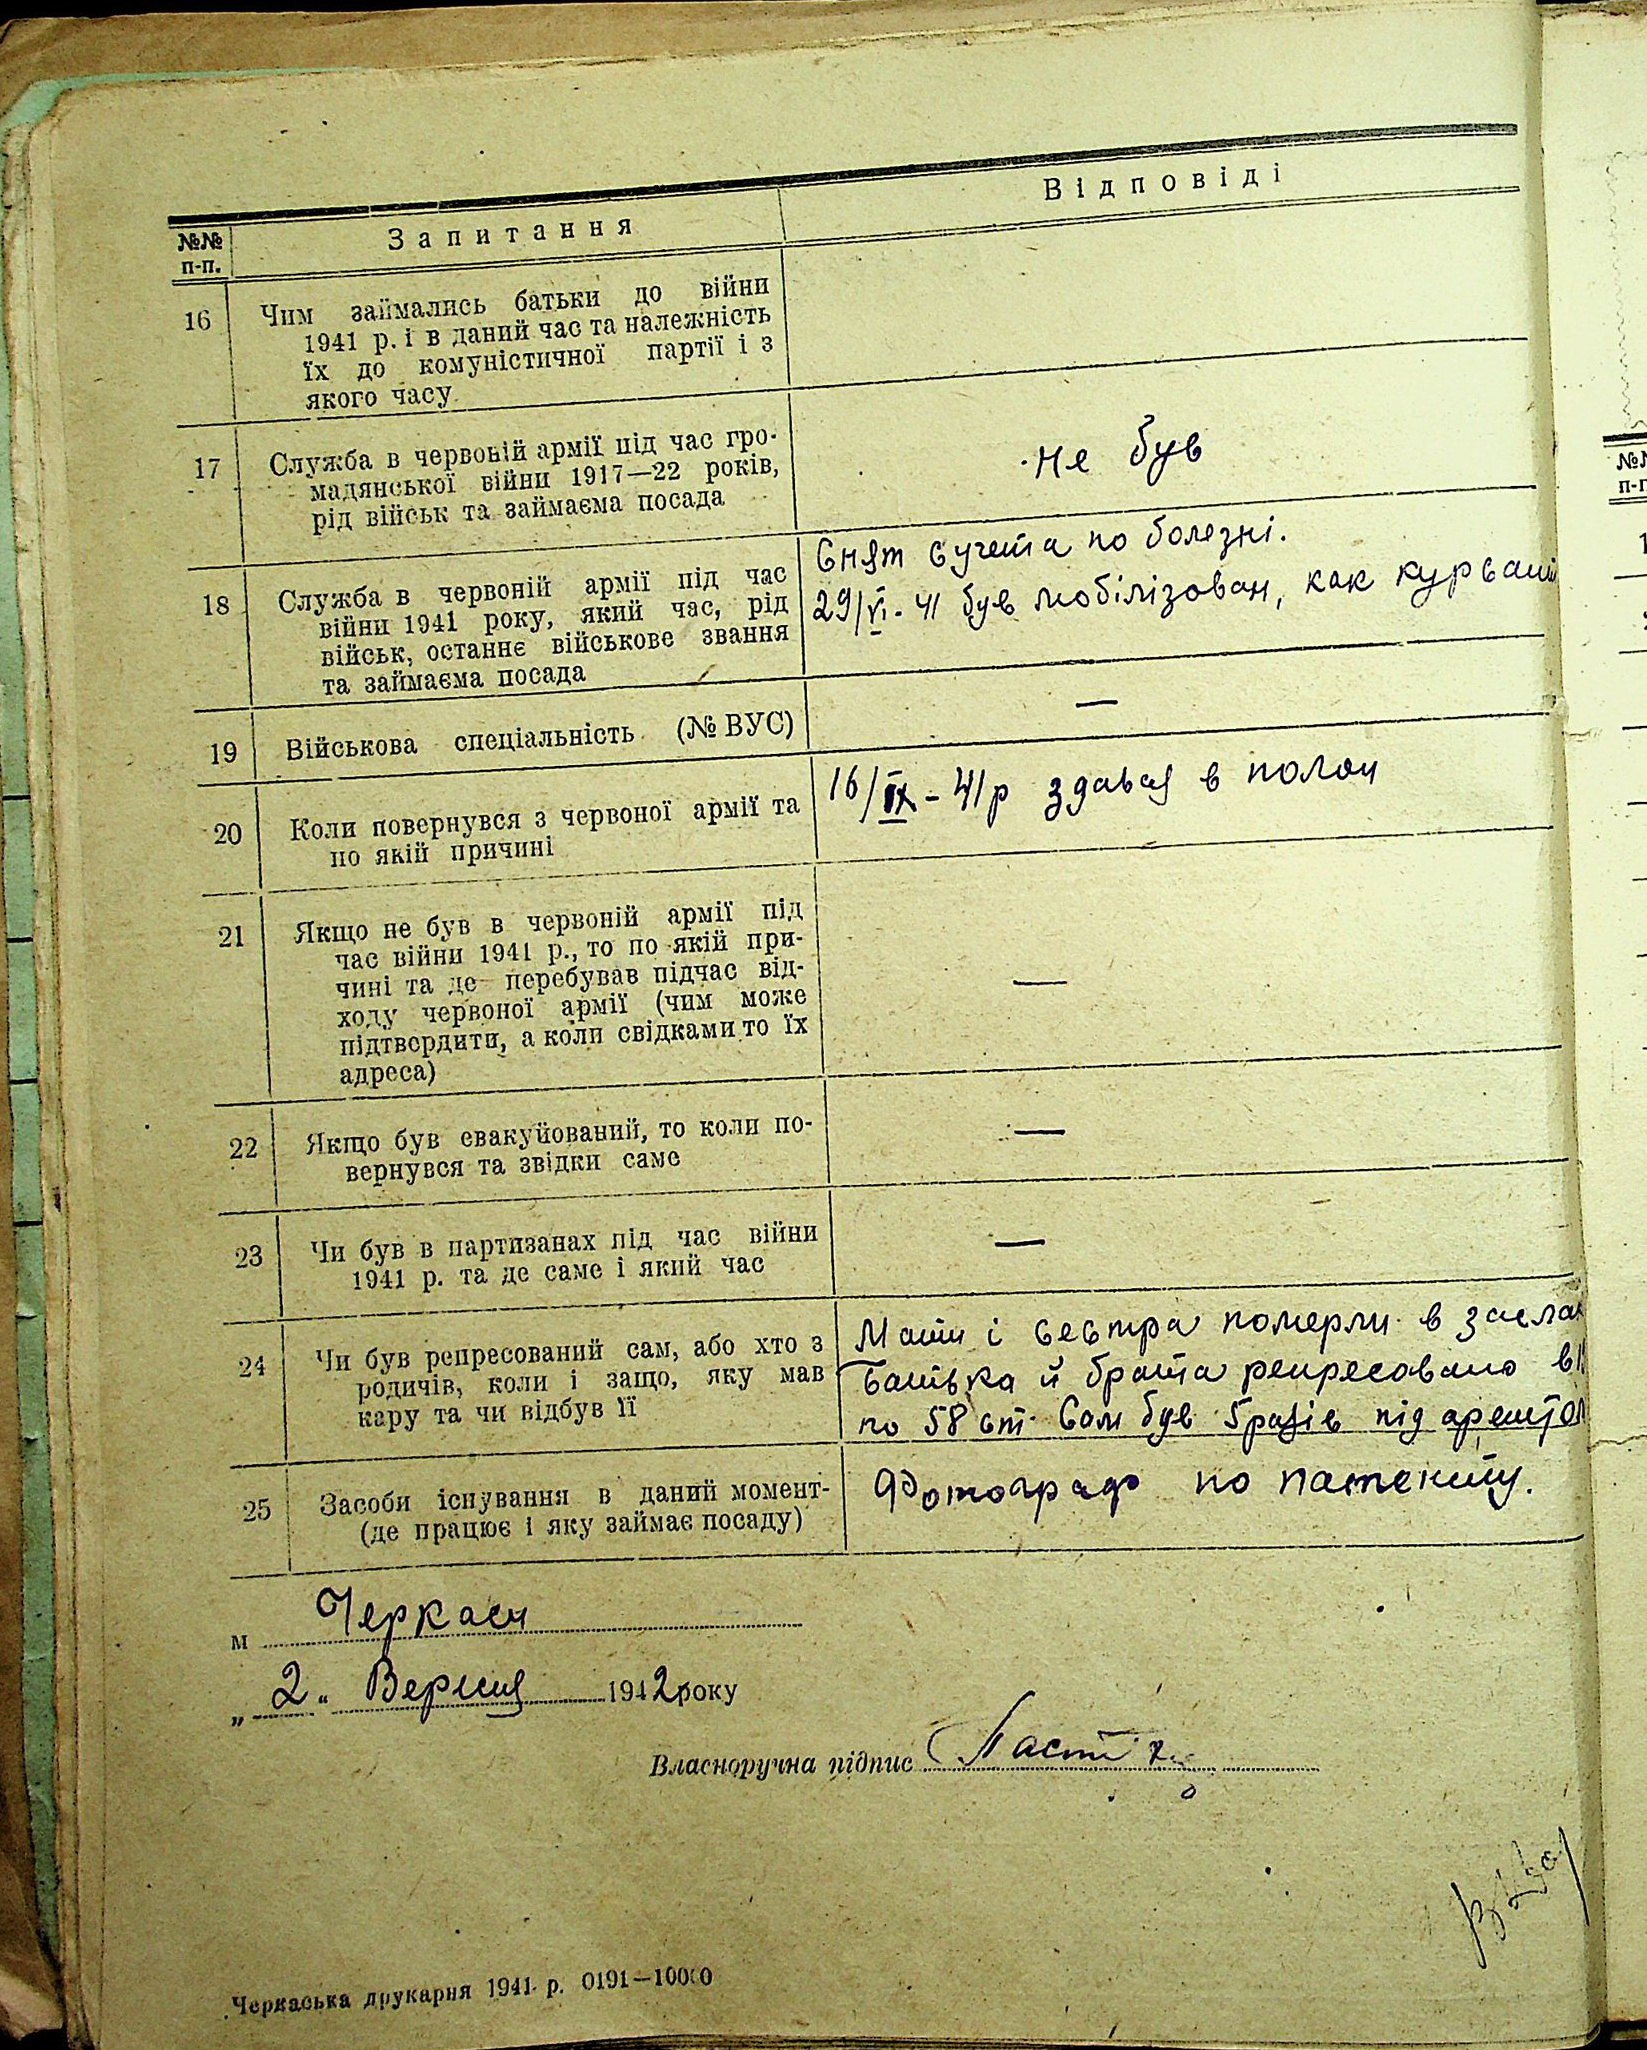 №№ п-п.
Запитання
Відповіді
16
Чим займались батьки до війни
1941 р. і в даний час та належність
їх до комуністичної партії і з
якого часу
17
Служба в червоній армії під час гро-
мадянської війни 1917—22 років,
рід військ та займаєма посада
не був
18
Служба в червоній армії під час
війни 1941 року, який час, рід
військ, останнє військове звання
та займаєма посада
Снят с учета по болезні.
29/VI-41 був мобілізован, как курсант
19
Військова спеціальність (№ ВУС)
—
20
Коли повернувся з червоної армії та
по якій причині
16/IX-41 р здався в полон
21
Якщо не був в червоній армії під
час війни 1941 р., то по якій при-
чині та де перебував підчас від-
ходу червоної армії (чим може
підтвердити, а коли свідками то їх
адреса)
—
22
Якщо був евакуйований, то коли по-
вернувся та звідки саме
—
23
Чи був в партизанах під час війни
1941 р. та де саме і який час
—
24
Чи був репресований сам, або хто з
родичів, коли і защо, яку мав
кару та чи відбув її
Мати і сестра померли в засла
Батька й брата репресовано в
по 58 ст. Сам був 5 разів під арештом
25
Засоби існування в даний момент-
(де працює і яку займає посаду)
Фотограф по патенту.
м Черкаси
„2" Вересня 1942 року
Власноручна підпис
Черкаська друкарня 1941 р. 0191—10000